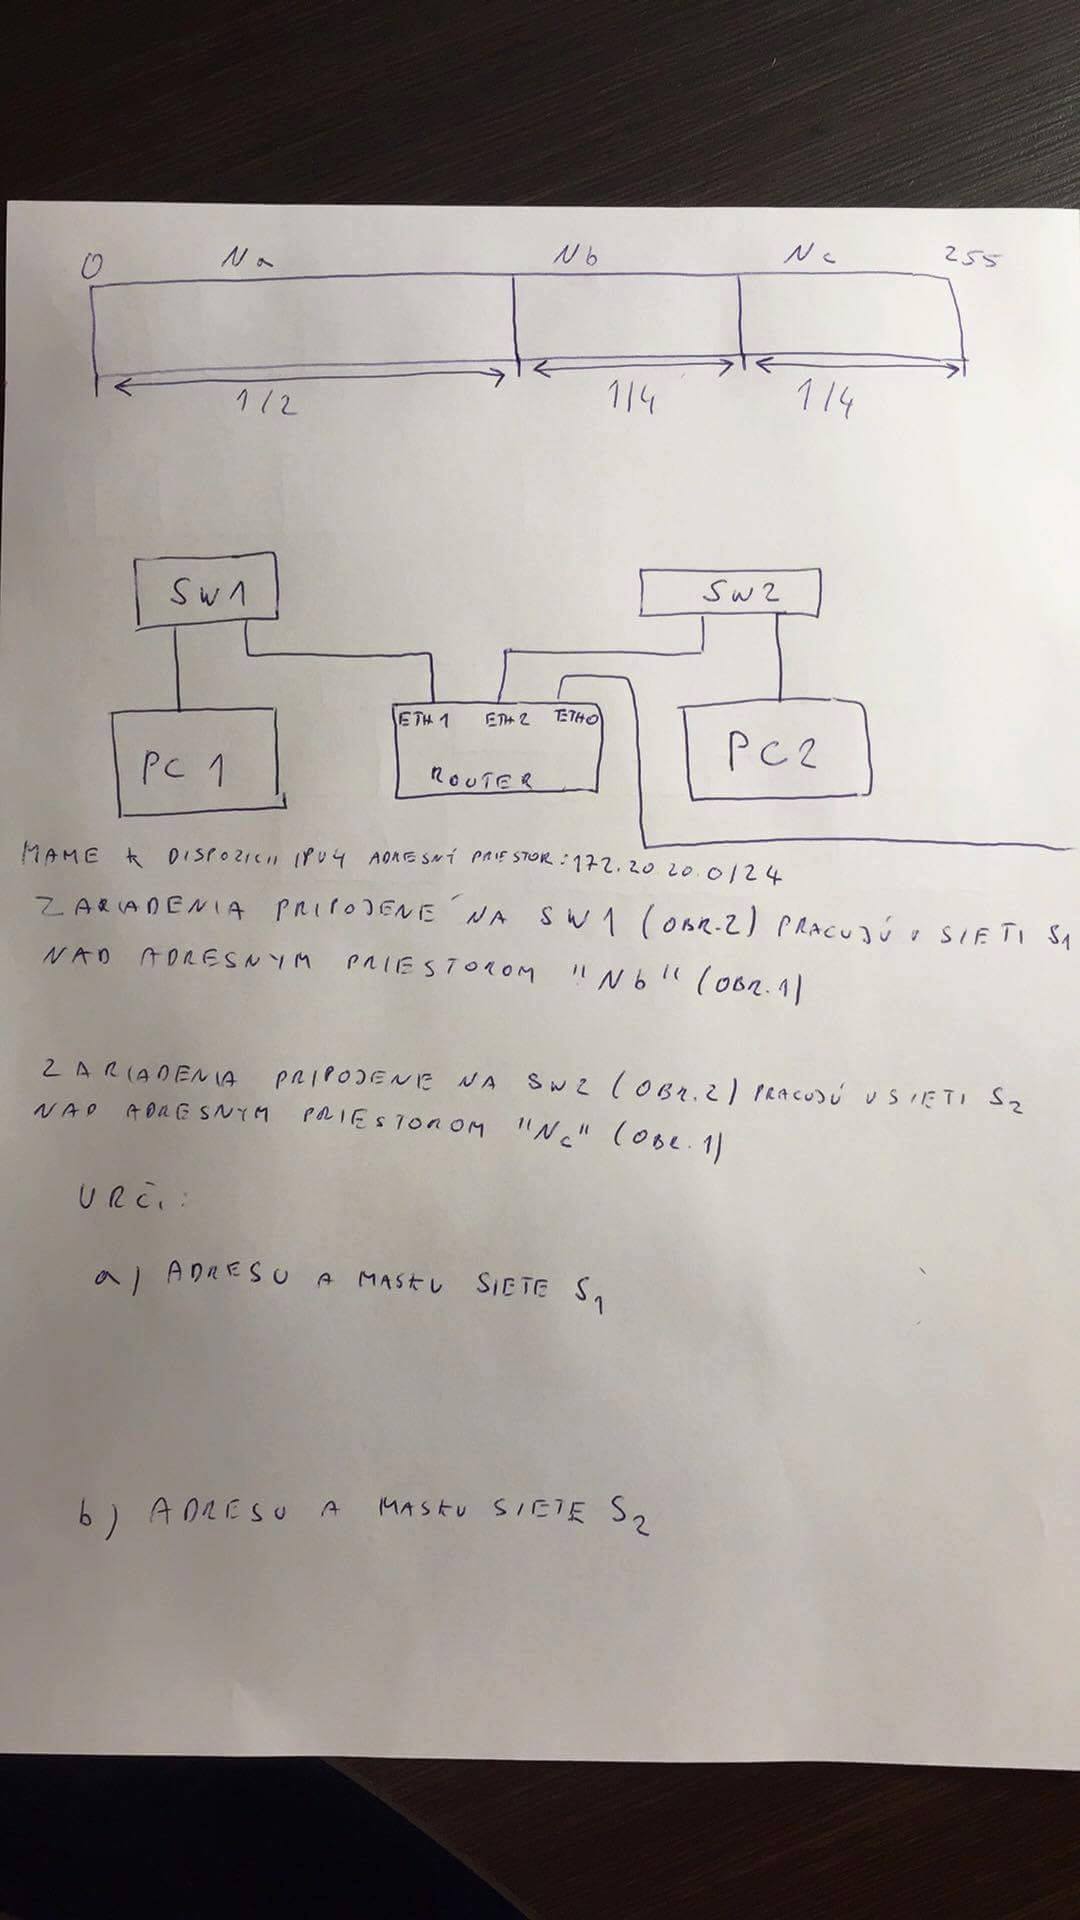 0 Na Nb Nc 255
1/2 1/4 1/4
SW1 SW2
ETH1 ETH2 ETH0
PC1 ROUTER PC2
MAME K DISPOZICII IPV4 ADRESNÝ PRIESTOR: 172.20.20.0/24
ZARIADENIA PRIPOJENÉ NA SW1 (OBR.2) PRACUJÚ V SIETI S1
NAD ADRESNYM PRIESTOROM "Nb" (OBR.1)
ZARIADENIA PRIPOJENE NA SW2 (OBR.2) PRACUJÚ V SIETI S2
NAD ADRESNYM PRIESTOROM "Nc" (OBR.1)
URČI:
a) ADRESU A MASKU SIETE S1
b) ADRESU A MASKU SIETE S2